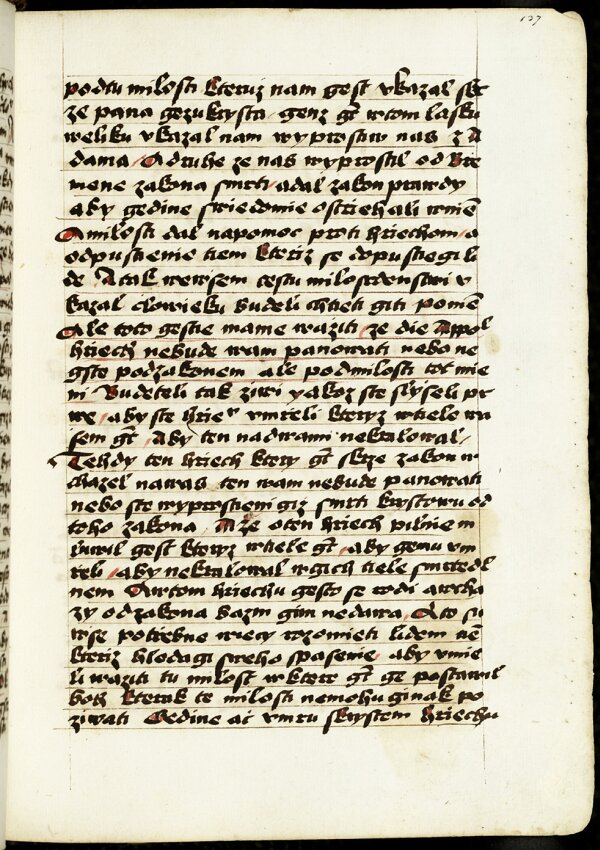 127
podtu milosti kteruz nam gest vkazal skr
ze pana gezukrysta genz gt wtom lasku
weliku vkazal nam wyprostiw nas z A
dama A druhe ze nas wyprostil od bre
mene zakona smrti adal zakon prawdy
aby gedine swiedomie ostriehali wnie
A milosti dal napomoc proti hriechom a
odpustienie tiem kteriz se dopustiegi li
de A tak wewsem cestu milosrdenstwi v
kazal clowieku budeli chtieti giti ponie
Ale toto gestie mame waziti ze die Appol
hriech nebude wam panowati nebo ne
gste podzakonem ale podmilosti tot mie
ni Budeteli tak ziwi yakoz ste slyseli pr
we aby ste hrie vmreli kteryz wtiele wa
sem gt Aby ten nadwami nekralowal
Tehdy ten hriech ktery gt skrze zakon w
chazel nawas ten wam nebude panowati
nebo ste wyprostieni giz smrti krystowu od
toho zakona A ze oten hriech pilnie m
luwil gest kteryz wtiele gt aby gemu vm
reli aby nekralowal wgich tiele smrtedl
nem Awtom hriechu gesto se rodi awcha
zy odzakona bazin gim nedawa A to su
wse potrebne wiecy rozomieti lidem
kteriz hledagi sweho spasenie aby vmie
li waziti tu milost wktere gt ge postawil
boh kterak te milosti nemohu ginak po
ziwati Gedine ac vmru skrystem hriechu